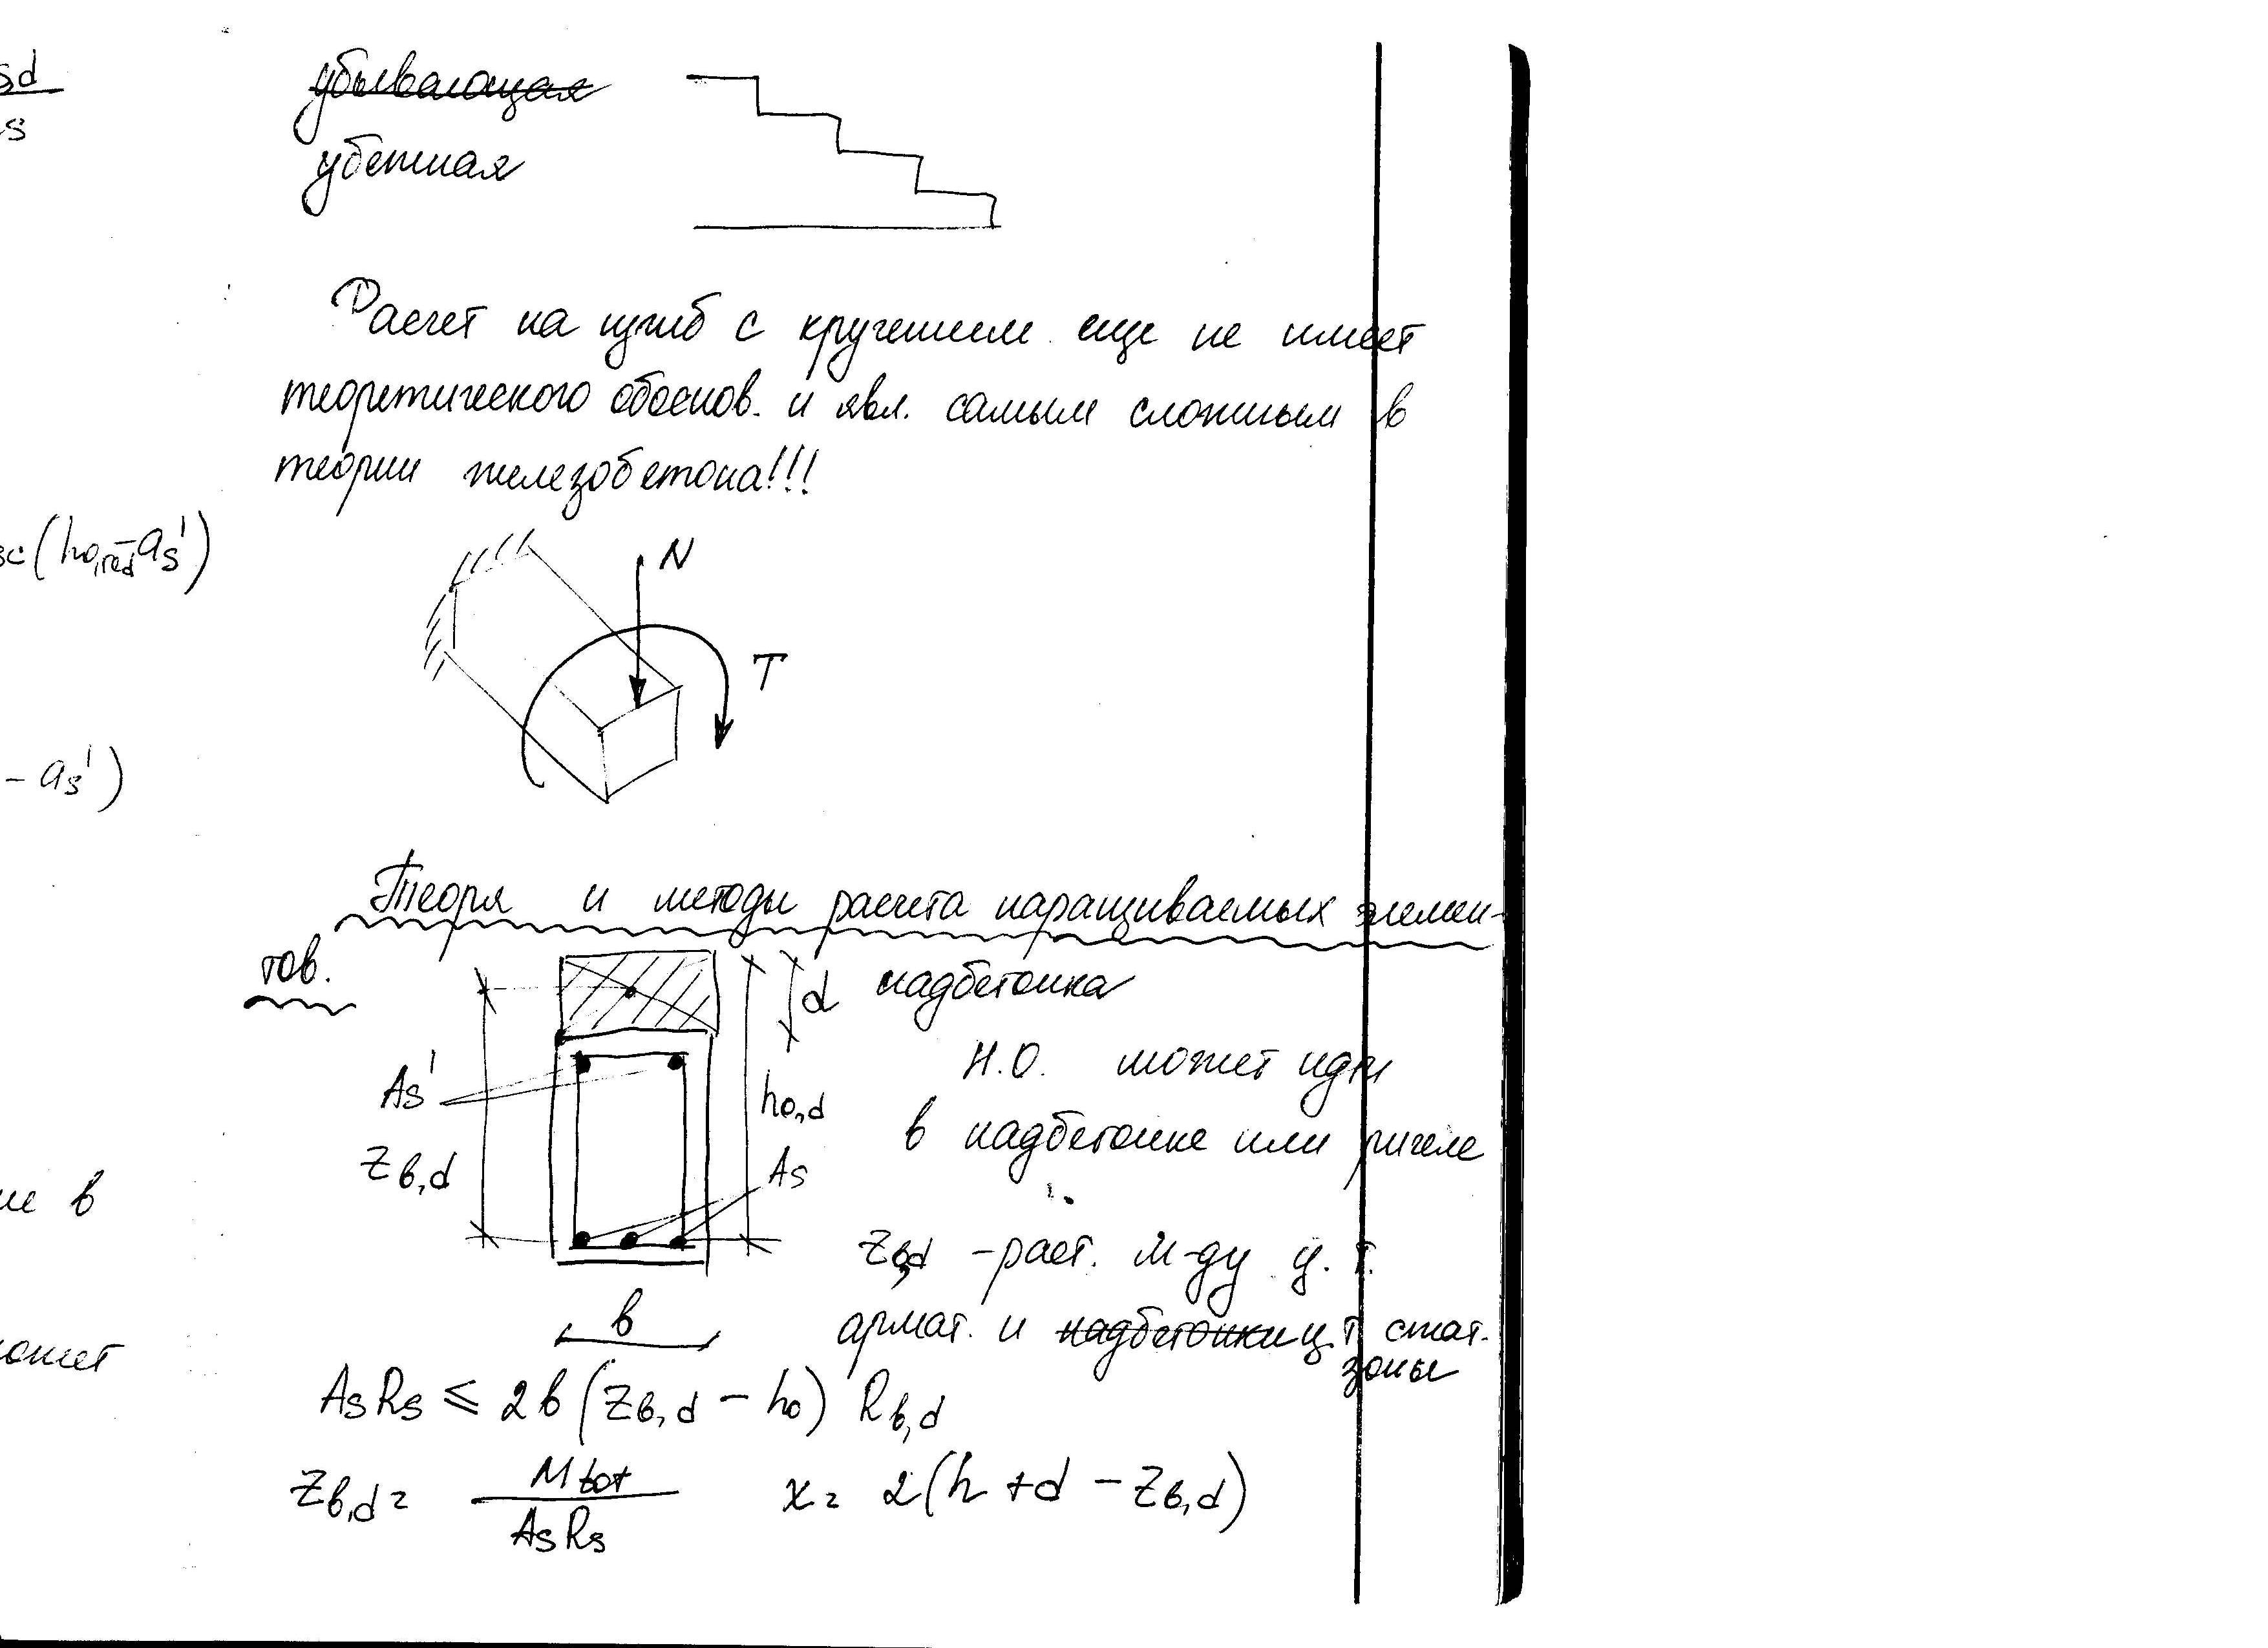 s,d
s
убывающая
убетная
Расчет на изгиб с кручением еще не имеет
теоретического обоснов. и явл. самым сложным в
теории железобетона!!!
sc(h0,red-as')
N
T
- as')
Теоря и методы расчета наращиваемых элемен-
тов.
d надбетонка
As'
h0,d
Н.О. может идти
в надбетонке или ригеле
Zв,d
As
ие в
Zв,d - раст. м-ду ц.т.
в
армат. и надбетонки ц.т сжат.
зоны
ожет
AsRs ≤ 2в(Zв,d - h0) Rв,d
Zв,d = Mtot / AsRs x = 2(h + d - Zв,d)